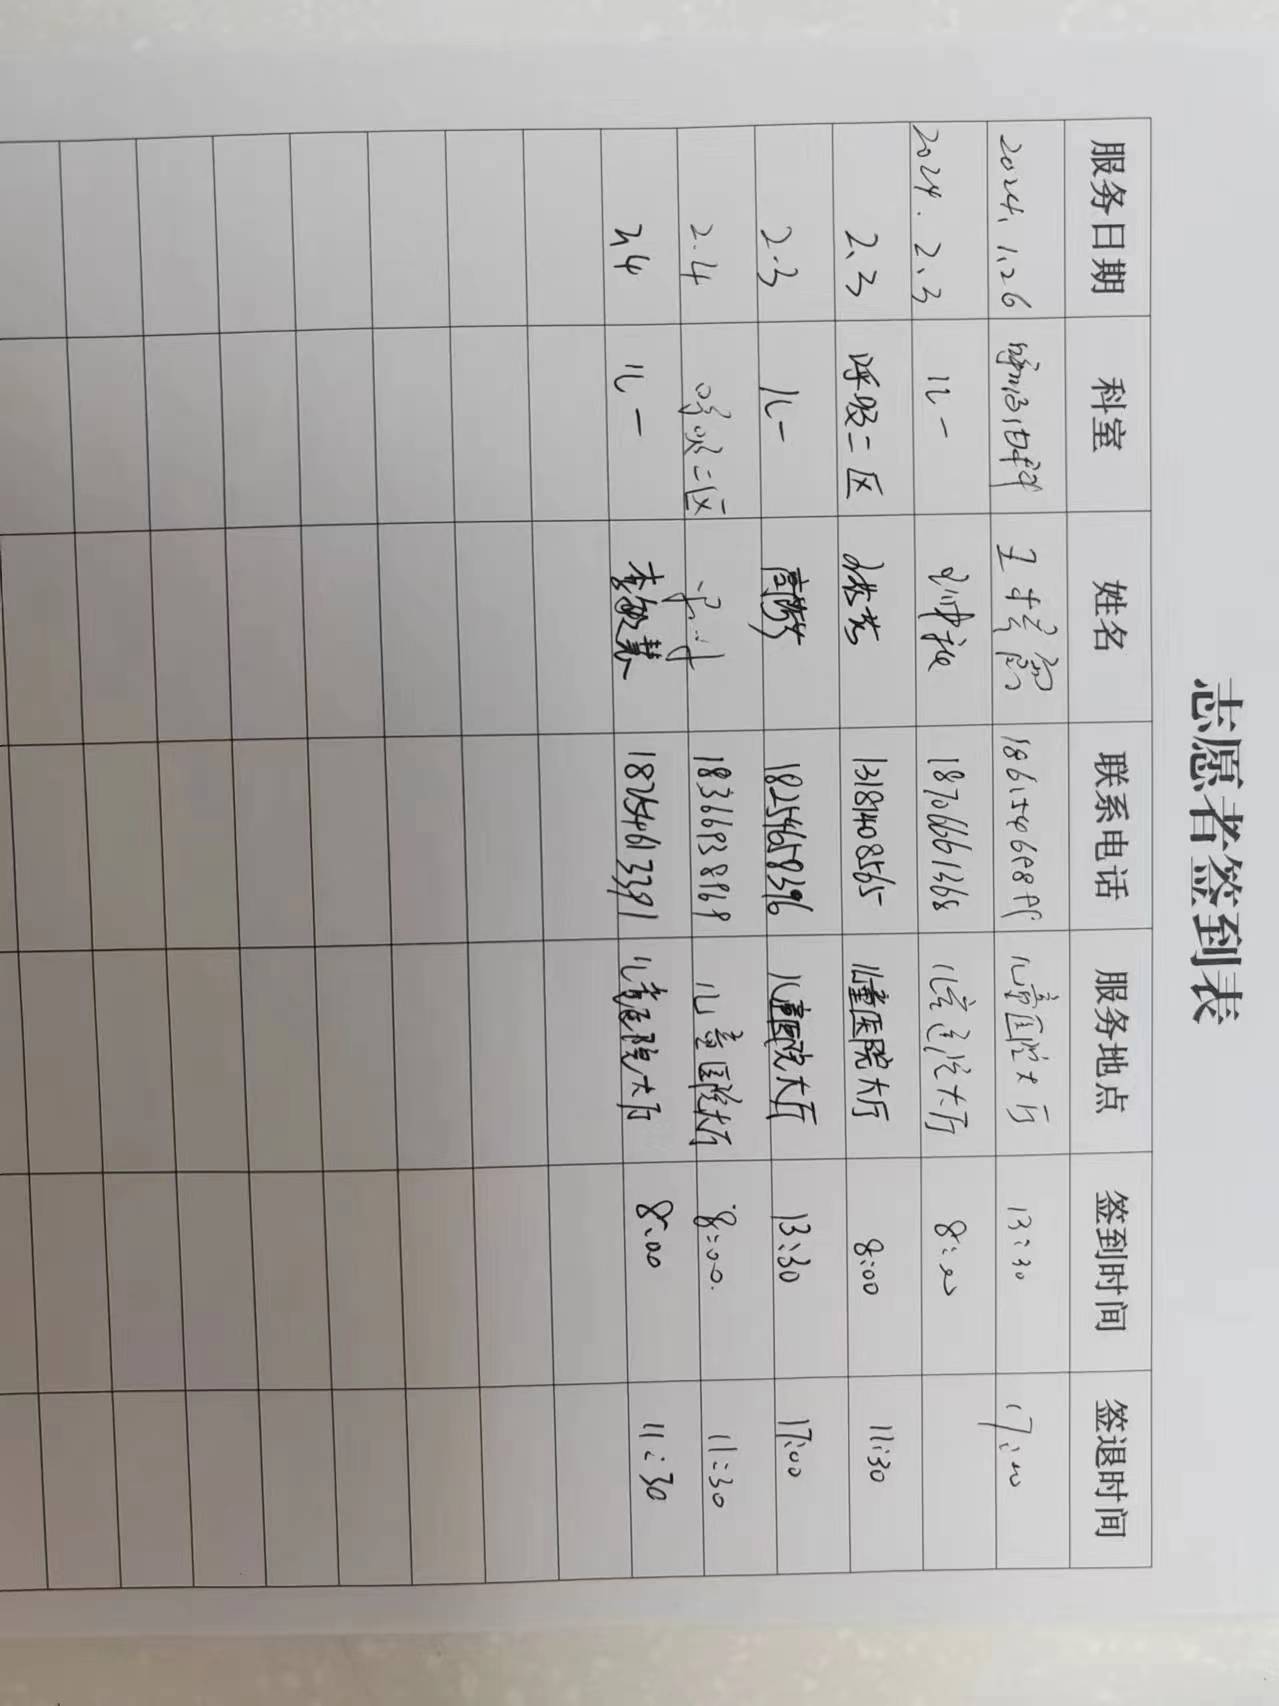 志愿者签到表
服务日期 科室 姓名 联系电话 服务地点 签到时间 签退时间
2024.1.26 呼吸内科 儿童医院大厅 13:30 17:00
2024.2.3 儿一 18706661368 儿童医院大厅 8:00
2.3 呼吸二区 13181408565 儿童医院大厅 8:00 11:30
2.3 儿一 18254658396 儿童医院大厅 13:30 17:00
2.4 呼吸二区 18366938969 儿童医院大厅 8:00 11:30
2.4 儿一 李敏慧 18254613391 儿童医院大厅 8:00 11:30